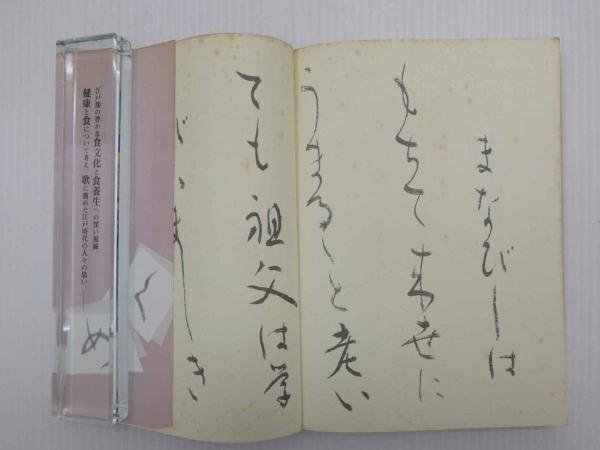 まなびしは
もちて来世に
うまるゝと老い
ても祖父は学
びいましき
江戸期の豊かな食文化と食養生への深い視線
健康と食について考え、歌に籠めた江戸時代の人々の思い。